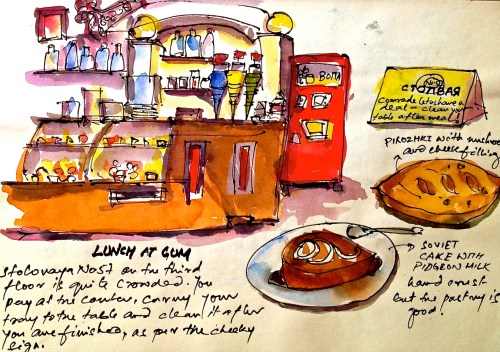 ВОТА
No 57
СТОЛОВАЯ
Comrade lets have a
deal — clean your
table after meal!
PIROZHKI with mushroom
and cheese filling
LUNCH AT GUM
Stolovaya No57 on the third
floor is quite crowded. You
pay at the counter, carry your
tray to the table and clean it after
you are finished, as per the cheeky
sign.
SOVIET
CAKE WITH
PIDGEON MILK
hard crust
but the pastry is
good.